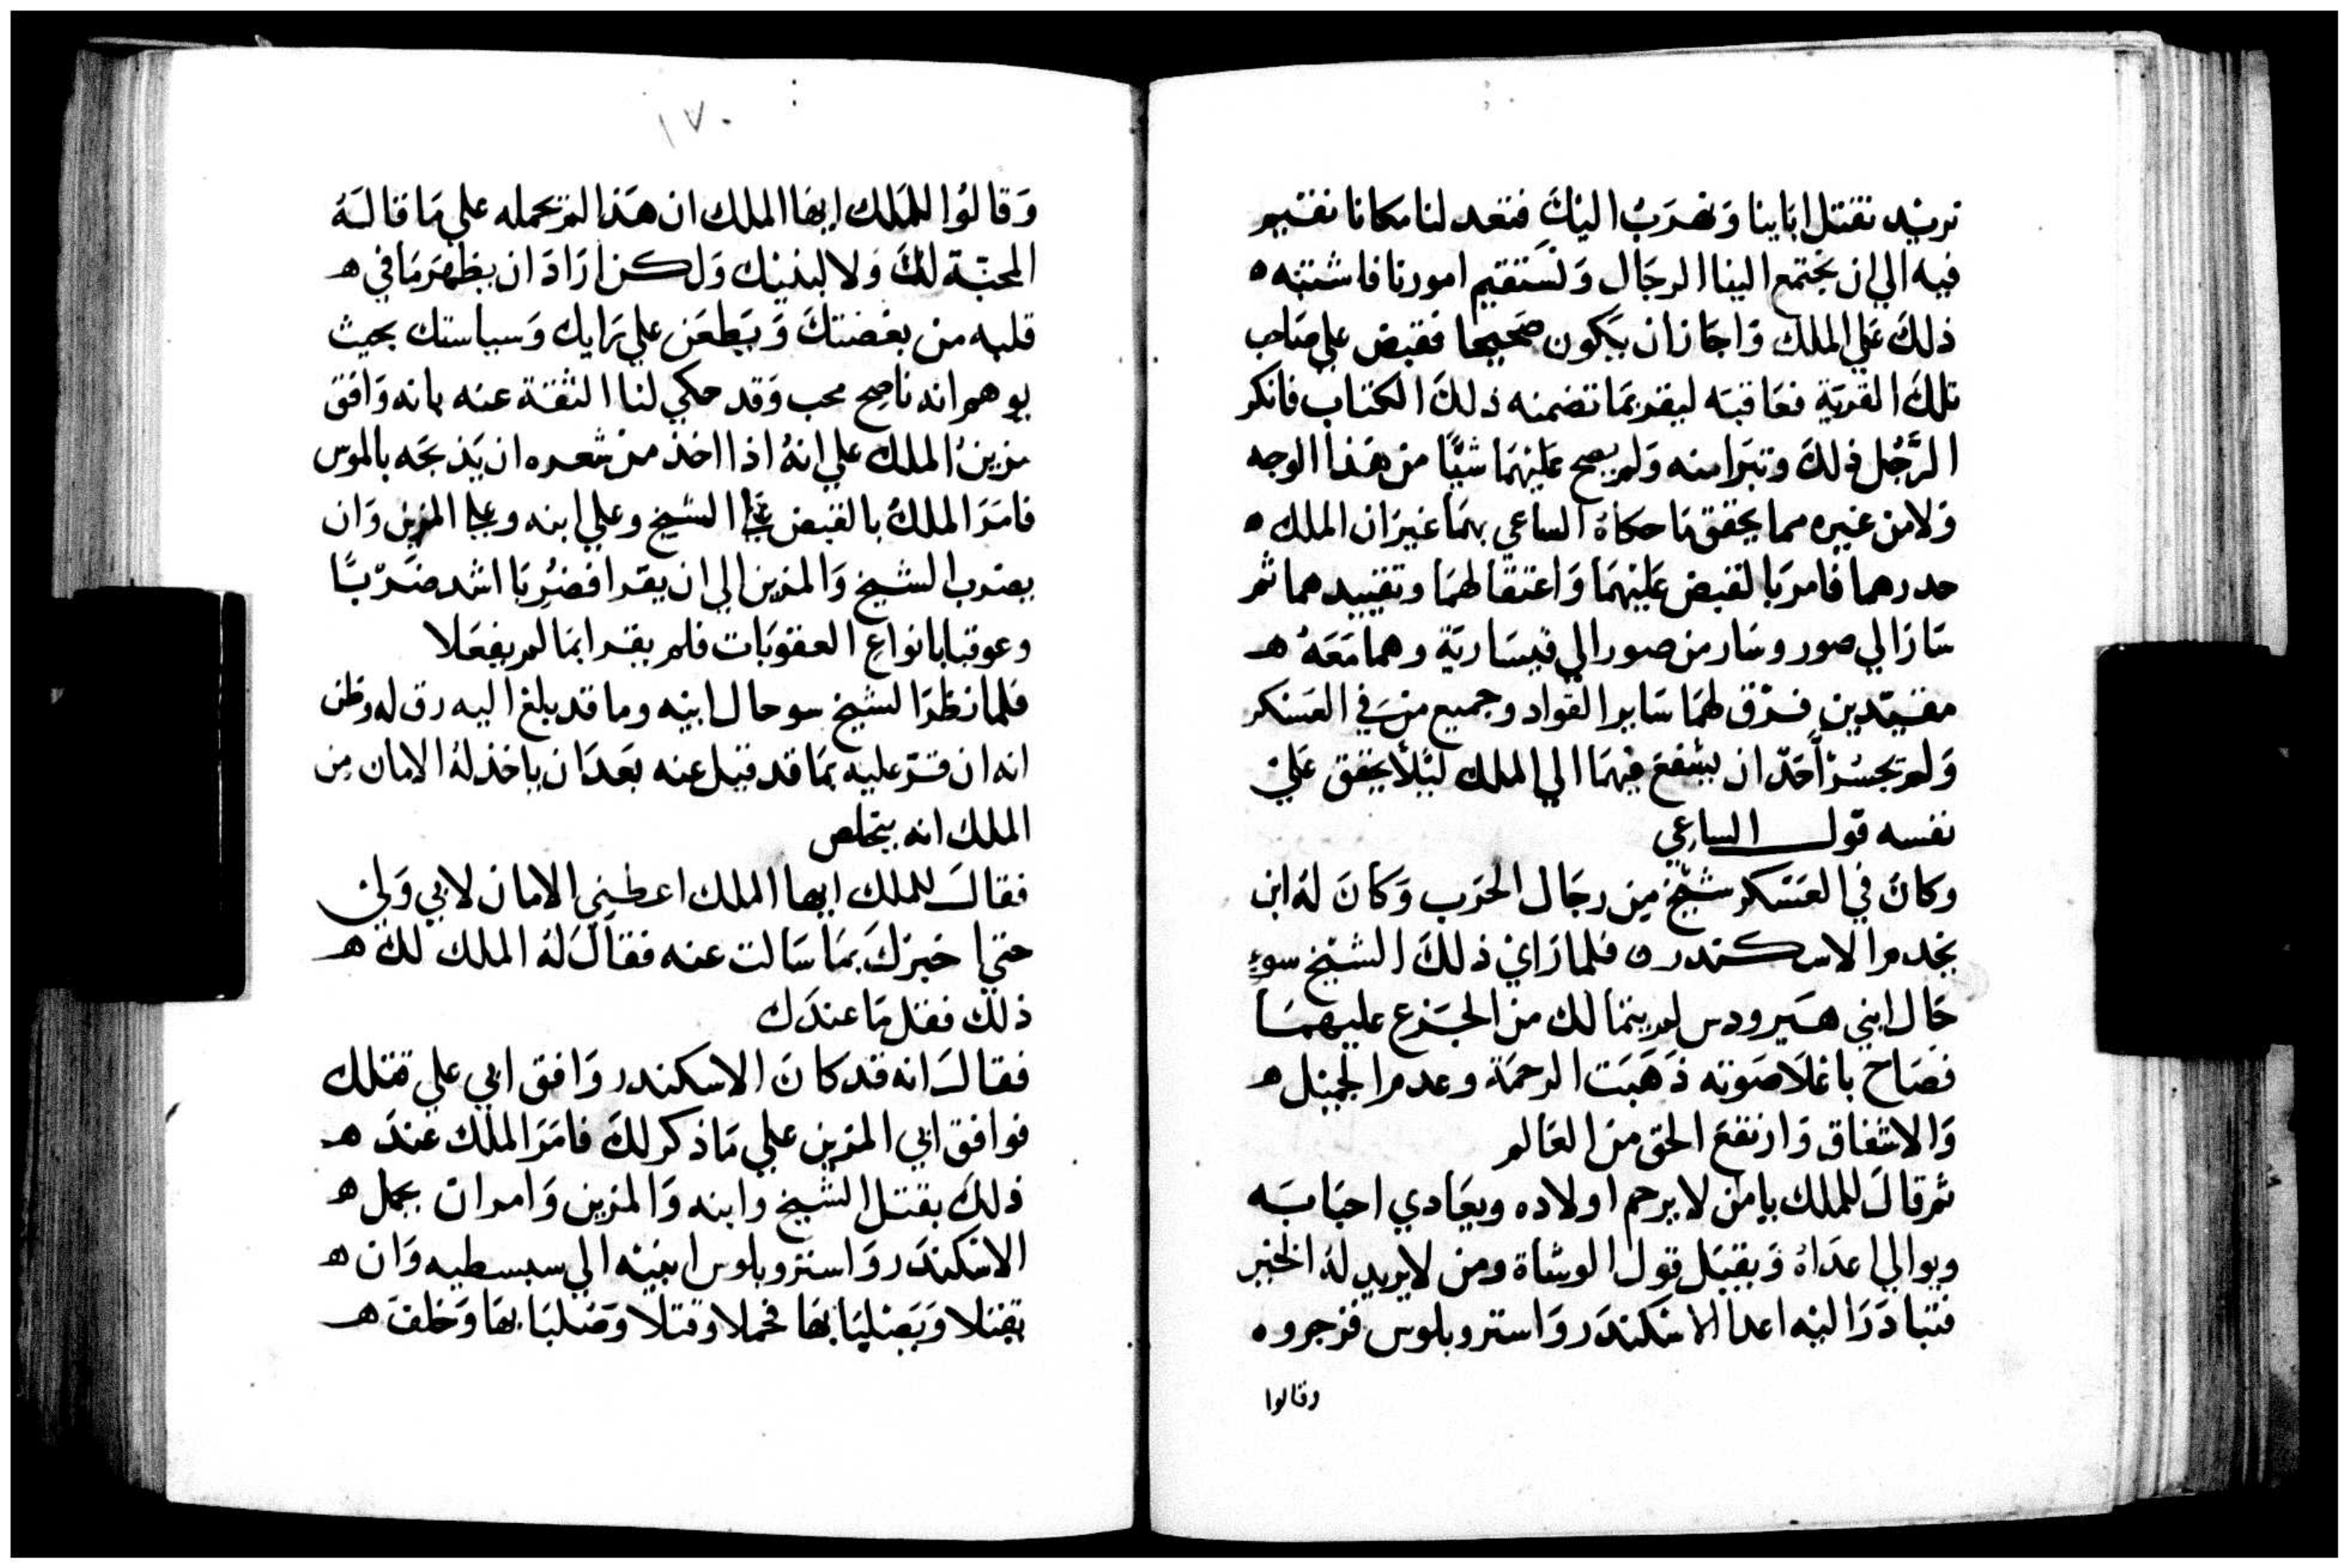 نريد نقتل ابانا ونهرب اليك فتعد لنا مكانا نقيم
فيه الي ان يجتمع الينا الرجال وتستقيم امورنا فاشتبه ه
ذلك علي الملك واجاز ان يكون صحيحا فقبض علي صاحب
تلك القرية فعاقبه ليقر بما تضمنه ذلك الكتاب فانكر
الرجل ذلك وتبرا منه ولم يصح عليهما شيًا من هذا الوجه
ولا من غيره مما يحقق ما حكاه الساعي بهما غير ان الملك ه
حدرهما فامر بالقبض عليهما واعتقالهما وتقييدهما ثم
سار الي صور وسار من صور الي قيسارية وهما معه ه
مقيدين فرق لهما ساير القواد وجميع من في العسكر
ولم يجسر احد ان يشفع فيهما الي الملك ليلا يحقق علي
نفسه قول الساعي
وكان في العسكر شيخ من رجال الحرب وكان له ابن
يخدم الاسكندر ه فلما راي ذلك الشيخ سوء
حال ابني هيرودس لم يتمالك من الجزع عليهما
فصاح باعلا صوته ذهبت الرحمة وعدم الجميل ه
والاشفاق وارتفع الحق من العالم
ثم قال للملك يا من لا يرحم اولاده ويعادي احبابه
ويوالي اعداه ويقبل قول الوشاة ومن لا يريد له الخير
فتبادر اليه اعدا الاسكندر واستروبلوس فزجروه
وقالوا
١٧٠
وقالوا للملك ايها الملك ان هذا لم يحمله علي ما قاله
المحبة لك ولا لبنيك ولكن اراد ان يظهر ما في ه
قلبه من بغضتك ويطعن علي رايك وسياستك بحيث
يوهم انه ناصح محب وقد حكي لنا الثقة عنه بانه وافق
مزين الملك علي انه اذا اخذ من شعره ان يذبحه بالموس
فامر الملك بالقبض علي الشيخ وعلي ابنه وعلي المزين وان
يضرب الشيخ والمزين الي ان يقرا فضربا اشد ضربًا
وعوقبا بانواع العقوبات فلم يقرا بما لم يفعلا
فلما نظر الشيخ سو حال ابنه وما قد بلغ اليه رق له وظن
انه ان قر عليه بما قد قيل عنه بعد ان ياخذ له الامان من
الملك انه يتخلص
فقال للملك ايها الملك اعطيني الامان لابي ولي
حتي اخبرك بما سالت عنه فقال له الملك لك ه
ذلك فقل ما عندك
فقال انه قد كان الاسكندر وافق ابي علي قتلك
فوافق ابي المزين علي ما ذكر لك فامر الملك عند ه
ذلك بقتل الشيخ وابنه والمزين وامر ان يحمل ه
الاسكندر واستروبلوس ابنيه الي سبسطيه وان ه
يقتلا ويصليبا بها فحملا وقتلا وصلبا بها وخلف ه